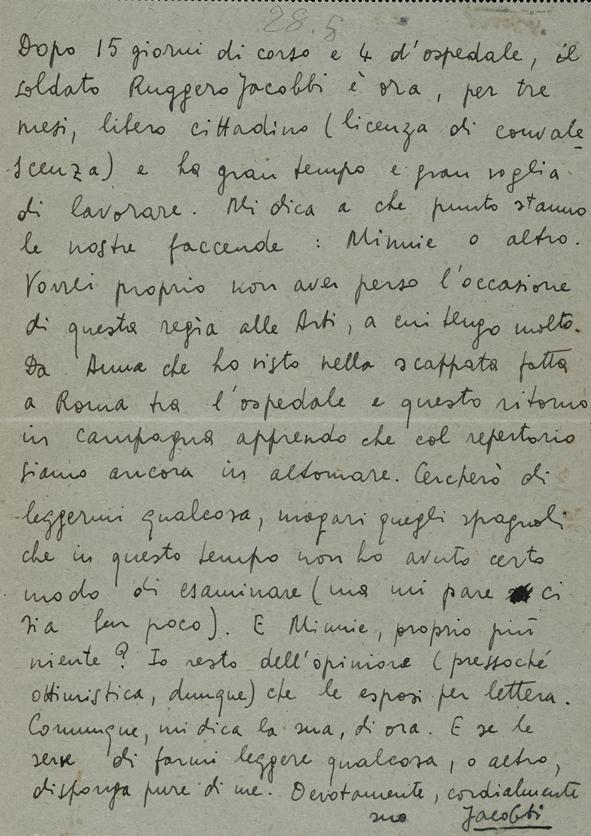 28.5
Dopo 15 giorni di corso e 4 d'ospedale, il
soldato Ruggero Jacobbi è ora, per tre
mesi, libero cittadino (licenza di convale
scenza) e ha gran tempo e gran voglia
di lavorare. Mi dica a che punto stanno
le nostre faccende : Minnie o altro.
Vorrei proprio non aver perso l'occasione
di questa regìa alle Arti, a cui tengo molto.
Da Anna che ho visto nella scappata fatta
a Roma tra l'ospedale e questo ritorno
in campagna apprendo che col repertorio
siamo ancora in altomare. Cercherò di
leggermi qualcosa, magari quegli spagnoli
che in questo tempo non ho avuto certo
modo di esaminare (ma mi pare ci
sia ben poco). E Minnie, proprio più
niente? Io resto dell'opinione (pressoché
ottimistica, dunque) che le esposi per lettera.
Comunque, mi dica la sua, di ora. E se le
serve di farmi leggere qualcosa, o altro,
disponga pure di me. Devotamente, cordialmente
suo Jacobbi